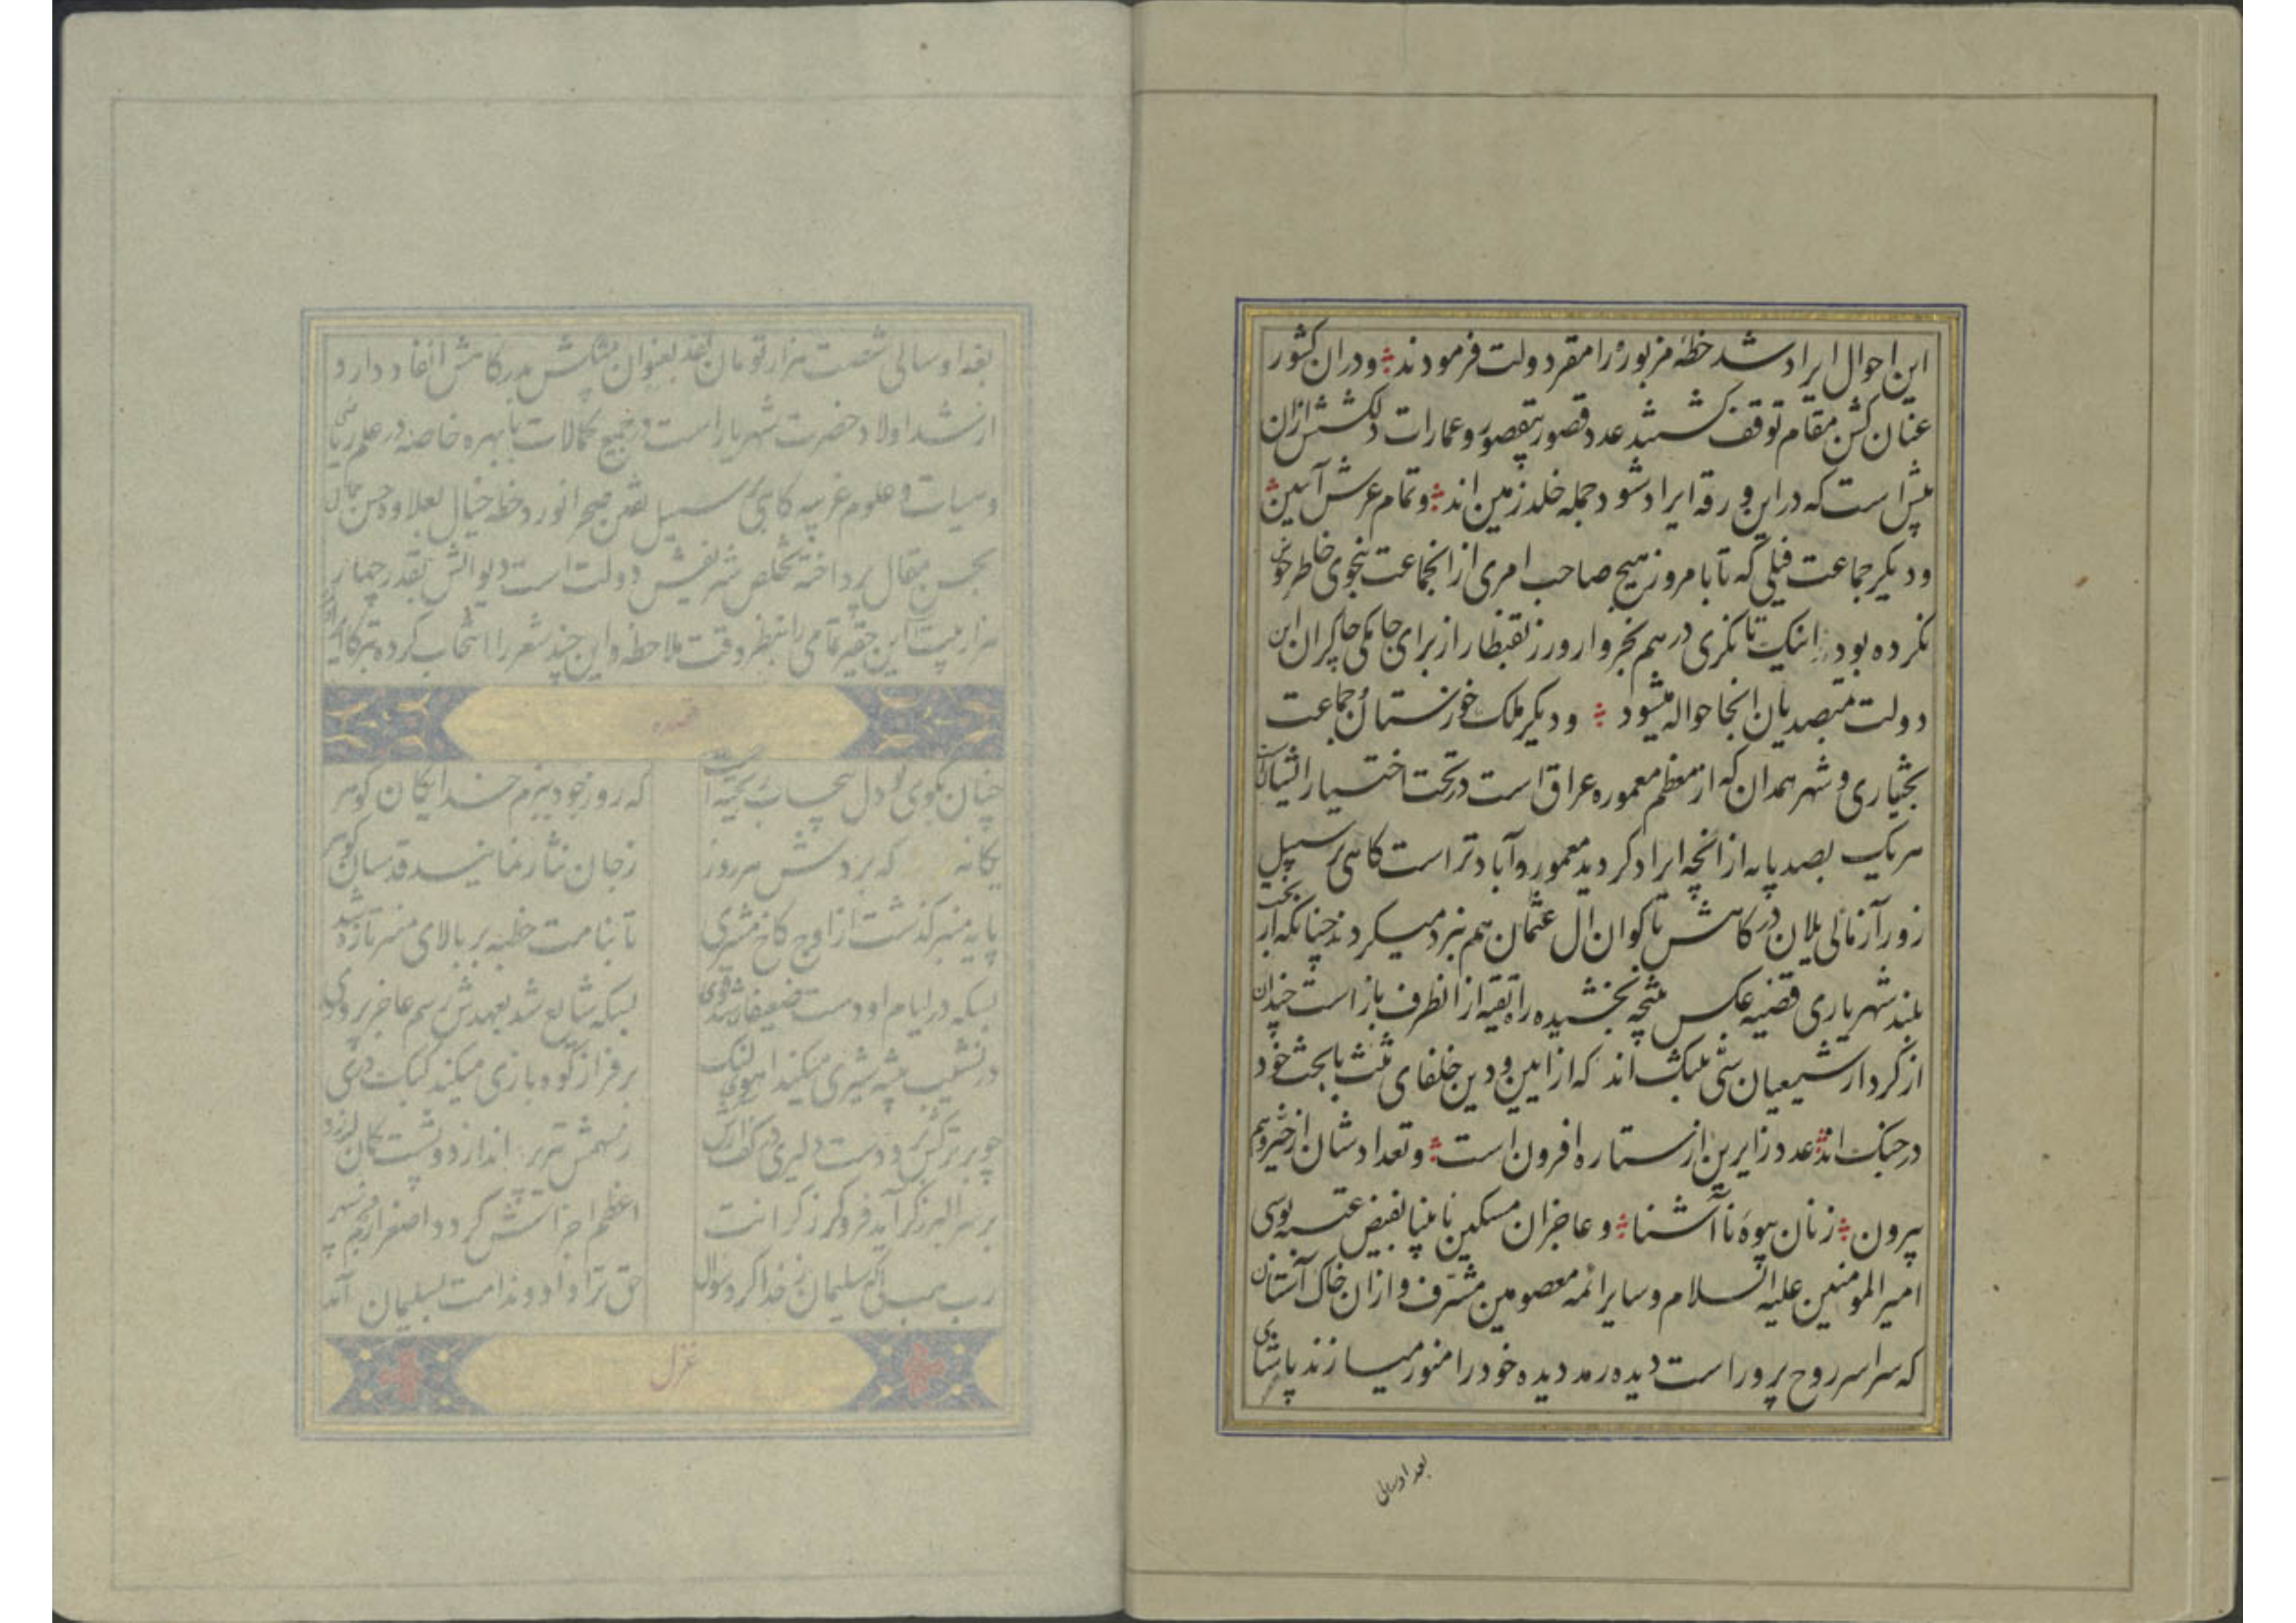 این احوال ایراد شد خطه مزبوره را مقر دولت فرمودند و در ان کشور
عنان کش مقام توقف کشتند عدد قصور بیقصور و عمارات دلکشش ازان
بیش است که در این ورقه ایراد شود جمله خلد زمین اند و تمام عرش آیین
و دیگر جماعت فیلی که تا بامروز هیچ صاحب امری از انجماعت بنحوی خاطرخواه
نکرده بود اینک تا نگری درهم بخروار و زر بقنطار از برای جامکی چاکران این
دولت بمتصدیان انجا حواله میشود و دیگر ملک خوزستان و جماعت
بختیاری و شهر همدان که از معظم معموره عراق است در تحت اختیار ایشان است
هریک بصد پایه از انچه ایراد کردید معمور و آباد تر است کاهی بر سبیل
زور آزمائی یلان درکاهش با کوان ال عثمان هم نبرد میکردند چنانکه از بخت
بلند شهریاری قضیه عکس نتیجه بخشیده راه تقیه از انطرف باز است چندان
از کردار شیعیان سنی بتنک اند که از ایین و دین خلفای ثلث با بخت خود
در جنک اند عدد زایرین از ستاره افزون است و تعدادشان از حیز وهم
بیرون زنان بیوه نا آشنا و عاجزان مسکین نابینا بفیض عتبه بوسی
امیر المومنین علیه السلام و سایر ائمه معصومین مشرف و ازان خاک آستان
که سراسر روح پرور است دیده رمد دیده خود را منور میسازند پاشای
بغداد سالی
بغداد سالی شصت هزار تومان نقد بعنوان پیشکش بدرکاهش انفاد دارد و
ارشد اولاد حضرت شهریار است در جمیع کمالات با بهره خاصه در علم ریاضی
و سیاق و علوم غریبه کاهی بر سبیل تفنن صحرا نورد خطه خیال بعلاوه حسن جمال
بحسن مقال پرداخته تخلص شریفش دولت است دیوانش بقدر چهار
هزار بیت این حقیر تمامی را بنظر دقت ملاحظه و این چند شعر را انتخاب کرده تبرکا
قصیده
چنان بکوی تو دل بیحساب ریخته است
که روز جود ببزم خدایکان کوهر
یکانه که بر دستش هر روز
ز جان نثار نمایند قدسیان کوهر
پایه منبر کذشت از اوج کاخ مشتری
تا بنامت خطبه بر بالای منبر تازه شد
بسکه در ایام او دست ضعیفان شد قوی
بسکه شایع شد بعهدش رسم عاجز پروری
در نشیب بیشه شیری میکند اهوی لنک
بر فراز کوه بازی میکند کبک دری
بر سر البرز کر آید فرو کرز کرانت
اعظم اجزاش کردد اصغر
رب هب لی که سلیمان ز خدا کرد سوال
حق ترا داد و ندامت بسلیمان آمد
غزل